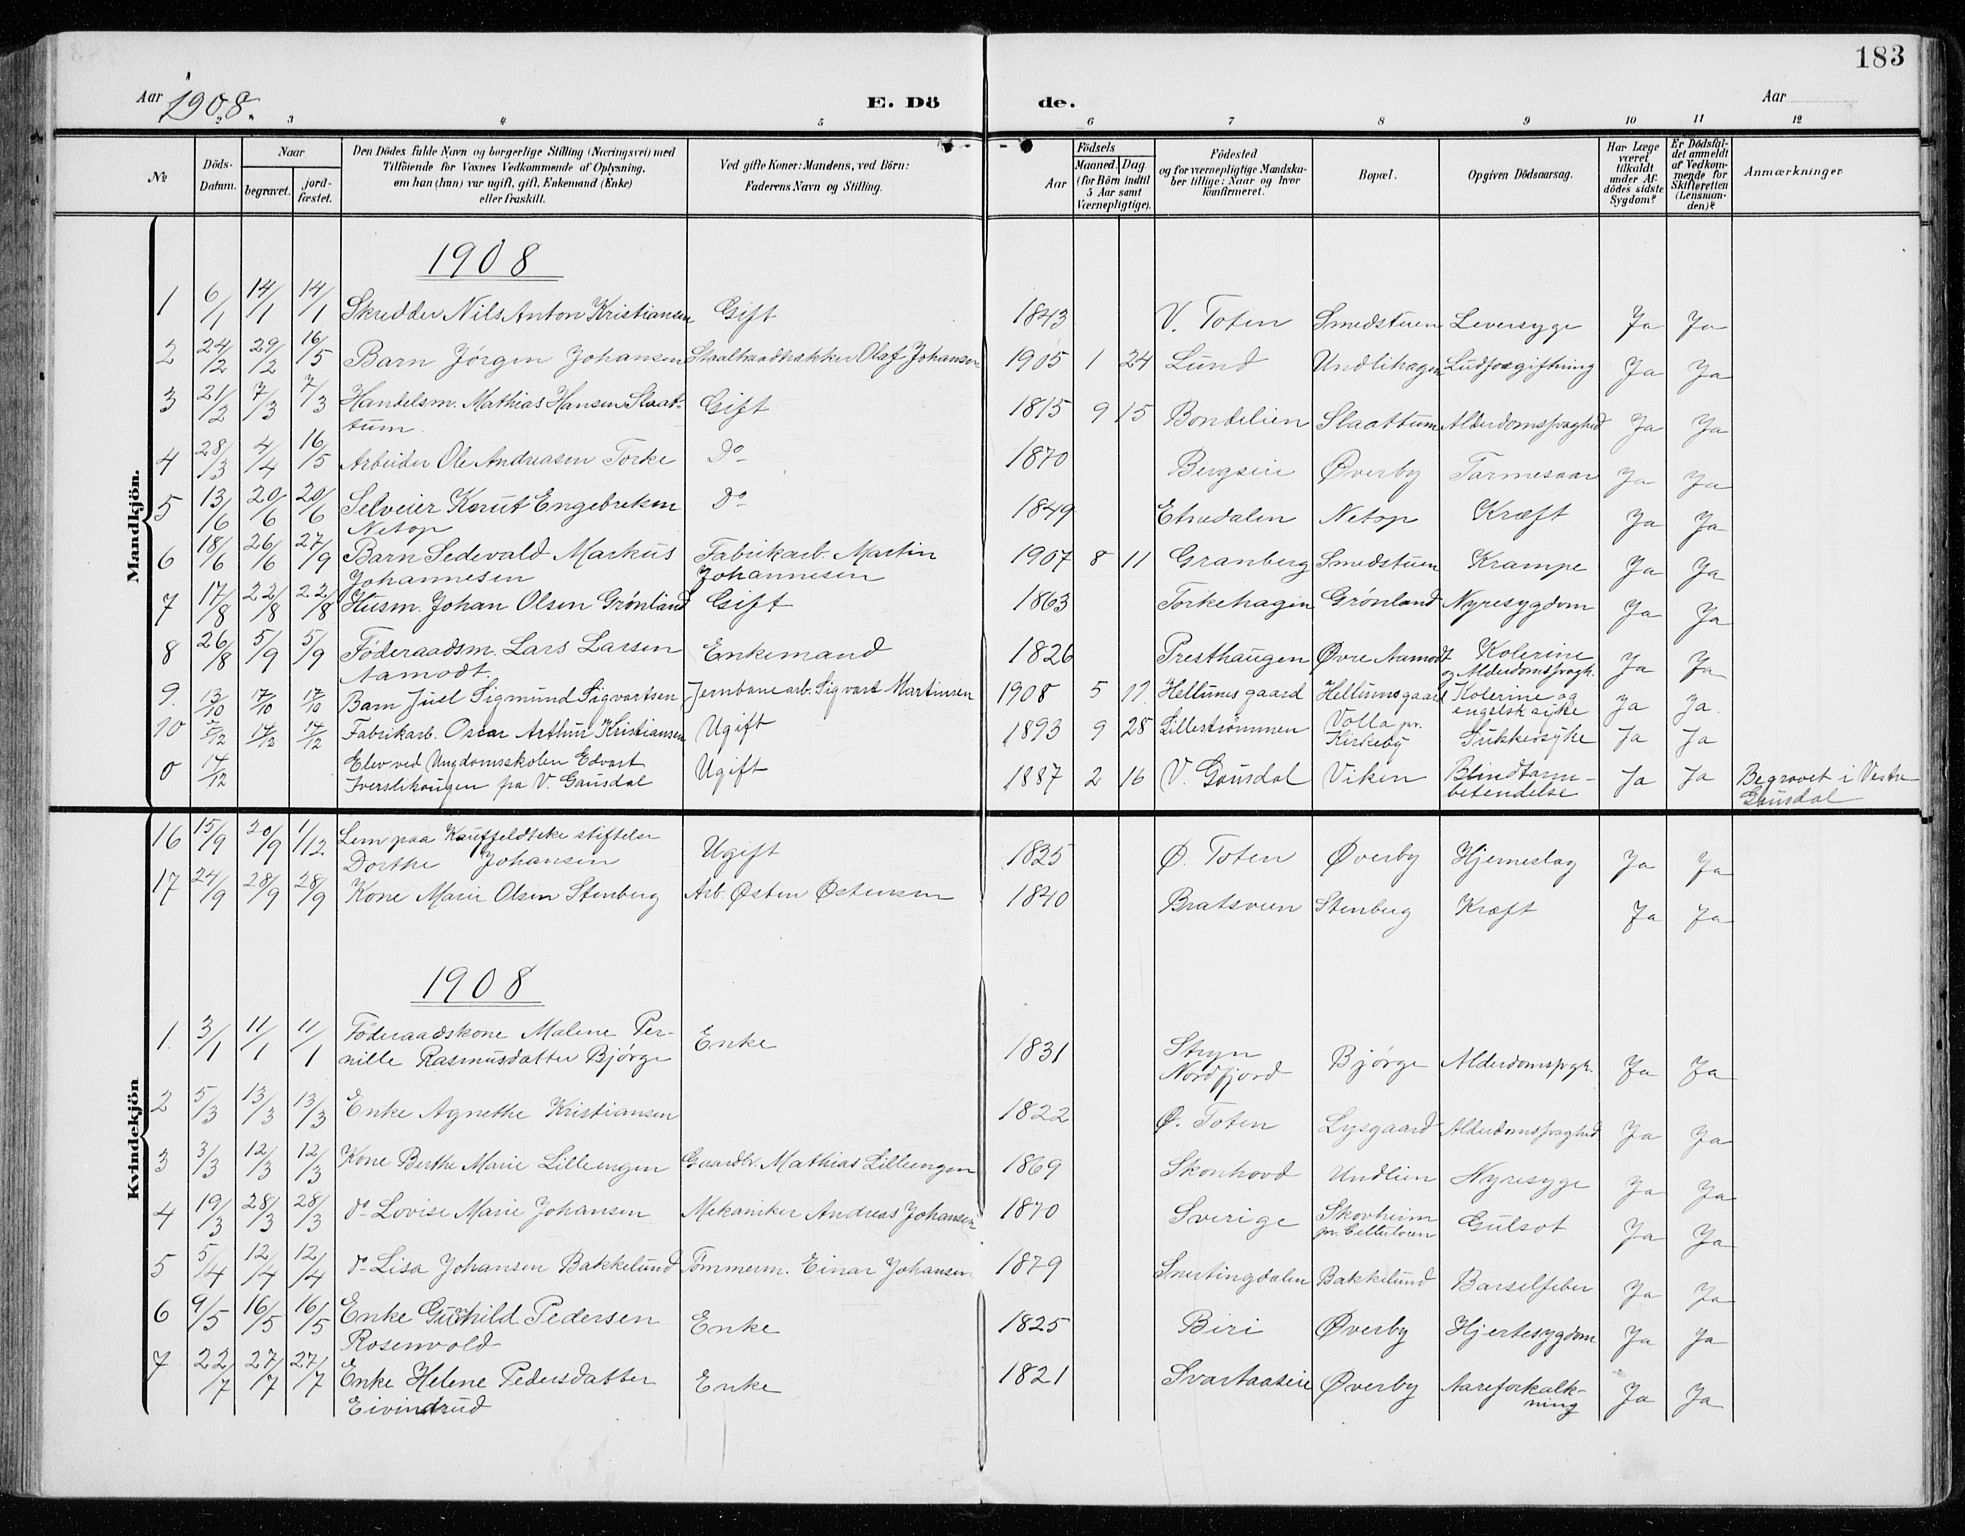 183
Aar 1908. E. Dö de. Aar
2 3 4 5 6 7 8 9 10 11 12
№ Döds-Datum. Naar begravet. jord-fæstet. Den Dödes fulde Navn og borgerlige Stilling (Næringsvei) med Tilföiende for Voxnes Vedkommende af Oplysning, om han (hun) var ugift, gift, Enkemand (Enke) eller fraskilt. Ved gifte Koner: Mandens, ved Börn: Faderens Navn og Stilling. Födsels Aar Maaned. Dag (for Börn indtil 5 Aar samt Værnepligtige). Födested og for værnepligtige Mandskaber tillige: Naar og hvor konfirmeret. Bopæl. Opgiven Dödsaarsag. Har Læge været tilkaldt under Afdödes sidste Sygdom? Er Dödsfaldet anmeldt af Vedkommende for Skifteretten (Lensmanden)? Anmærkninger
Mandkjön.
1908
1 6/1 14/1 14/1 Skredder Nils Anton Kristiansen Gift 1843 V. Toten Smedstuen Leversyge Ja Ja
2 24/2 29/2 16/5 Barn Jørgen Johansen Staaltraadtrækker Olaf Johansen 1905 1 24 Lund Undlihagen Ludforgiftning Ja Ja
3 21/2 7/3 7/3 Handelsm. Mathias Hansen Slaat-
tum. Gift 1815 9 15 Bondelien Slaattum Alderdomssvaghed Ja Ja
4 28/3 4/4 16/5 Arbeider Ole Andreasen Torke Do 1870 Bergseie Øverby Tarmesaar Ja Ja
5 13/6 20/6 20/6 Selveier Knut Engebreksen
Netop Do 1849 Etnedalen Netop Kræft Ja Ja
6 18/6 26/6 27/9 Barn Sedevald Markus
Johannesen Fabrikarb. Martin
Johannesen 1907 8 11 Granberg Smedstuen Krampe Ja Ja
7 17/8 22/8 22/8 Husm. Johan Olsen Grønland Gift 1863 Torkehagen Grønland Nyresygdom Ja Ja
8 26/8 5/9 5/9 Föderaadsm. Lars Larsen
Aamodt. Enkemand 1826 Presthaugen Øvre Aamodt Kolerine
og Alderdomssvagh. Ja Ja
9. 13/10 17/10 17/10 Barn Juel Sigmund Sigvartsen Jernbanearb. Sigvart Martinsen 1908 5 17 Hellumsgaard Hellumsgaard Kolerine og
engelsk syke Ja Ja.
10 /12 17/12 17/12 Fabrikarb. Oscar Arthur Kristiansen Ugift 1893 9 28 Lillestrømmen Volla pr.
Kirkeby Sukkersyke Ja Ja
0 17/12 Elev ved Ungdomsskolen Edvart
Iverslihaugen fra V. Gausdal Ugift 1887 2 16 V. Gausdal Viken Blindtarm-
betendelse Ja Ja Begravet i Vestre
Gausdal
Kvindekjön
16 15/9 20/9 1/12 Lem paa Kauffeldtske stiftelse
Dorthe Johansen Ugift 1825 Ø. Toten Øverby Hjerneslag Ja Ja
17 24/9 28/9 28/9 Kone Marie Olsen Stenberg Arb. Østen Østensen 1840 Bratsveen Stenberg Kræft Ja Ja
1908
1. 3/1 11/1 11/1 Föderaadskone Malene Per-
nille Rasmusdatter Bjørge Enke 1831 Stryn
Nordfjord Bjørge Alderdomssvgh. Ja Ja
2 5/3 13/3 13/3 Enke Agnethe Kristiansen 1822 Ø. Toten Lysgaard Alderdomssvaghed Ja Ja
3 3/3 12/3 12/3 Kone Berthe Marie Lilleengen Gaardbr. Mathias Lilleengen 1869 Skonhovd Undlien Nyresyge Ja Ja
4 19/3 28/3 28/3 do Lovise Marie Johansen Mekaniker Andreas Johansen 1870 Sverige Skovheim
pr. Cellulosen Gulsot Ja Ja
5 5/4 12/4 12/4 do Lisa Johansen Bakkelund Tömmerm. Einar Johansen 1879 Snertingdalen Bakkelund Barselfeber Ja Ja
6 9/5 16/5 16/5 Enke Gunhild Pedersen
Rosenvold Enke 1825 Biri Øverby Hjertesygdom Ja Ja
7 22/7 27/7 27/7 Enke Helene Pedersdatter
Eivindrud Enke 1821 Svartaaseie Øverby Aareforkalk-
ning Ja Ja